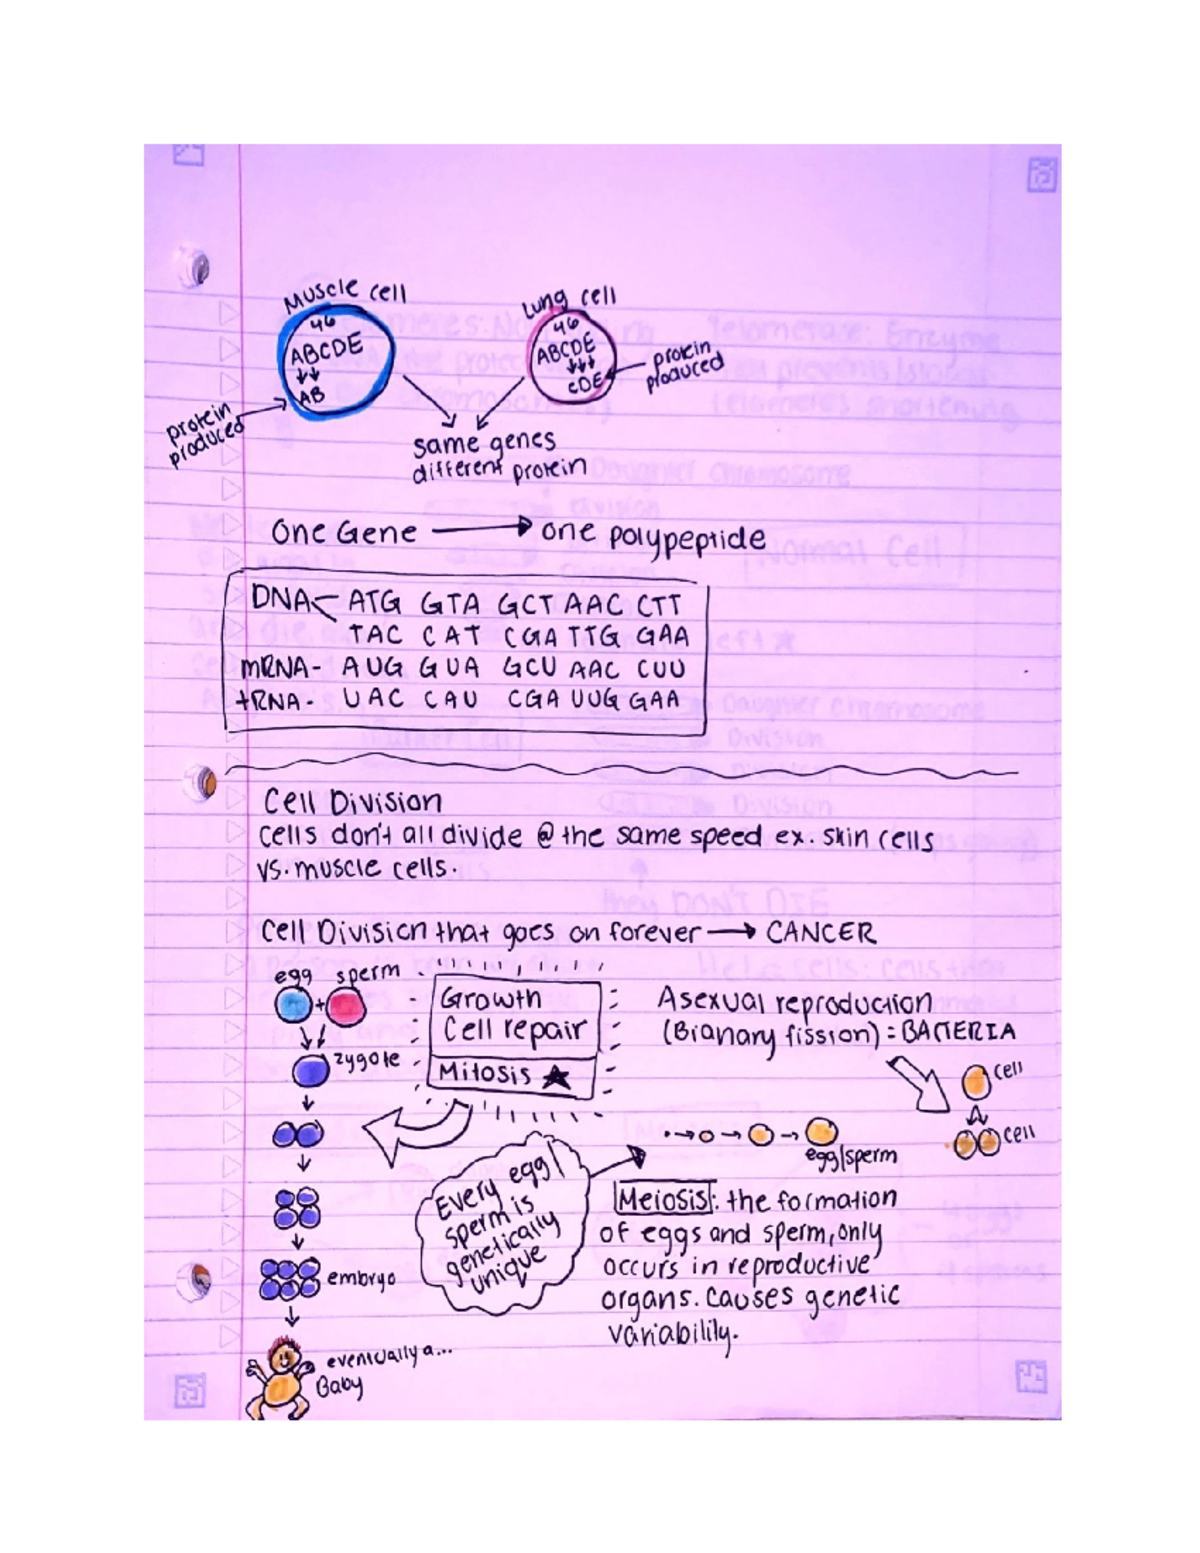 Muscle cell
46
ABCDE
AB
protein
produced
Lung cell
46
ABCDE
CDE
protein
produced
same genes
different protein
One Gene → one polypeptide
DNA< ATG GTA GCT AAC CTT
TAC CAT CGA TTG GAA
mRNA- AUG GUA GCU AAC CUU
tRNA- UAC CAU CGA UUG GAA
Cell Division
cells don't all divide @ the same speed ex. skin cells
vs. muscle cells.
Cell Division that goes on forever → CANCER
egg + sperm
zygote
embryo
eventually a...
Baby
Growth
Cell repair
Mitosis ★
Asexual reproduction
(Bianary fission) = BACTERIA
cell
cell
egg/sperm
Every egg/
sperm is
genetically
unique
Meiosis: the formation
of eggs and sperm, only
occurs in reproductive
organs. Causes genetic
variability.